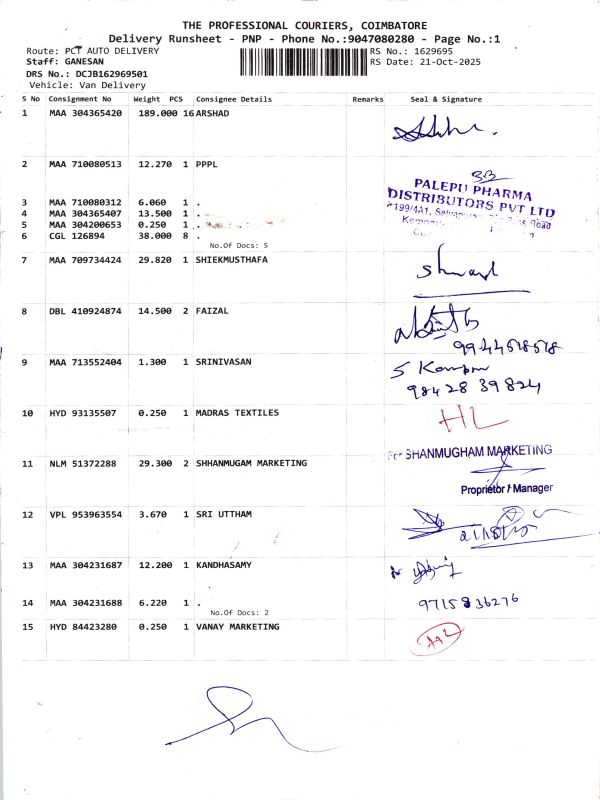 THE PROFESSIONAL COURIERS, COIMBATORE
Delivery Runsheet - PNP - Phone No.:9047080280 - Page No.:1
Route: PCT AUTO DELIVERY RS No.: 1629695
Staff: GANESAN RS Date: 21-Oct-2025
DRS No.: DCJB162969501
Vehicle: Van Delivery
S No Consignment No Weight PCS Consignee Details Remarks Seal & Signature
1 MAA 304365420 189.000 16 ARSHAD
2 MAA 710080513 12.270 1 PPPL
PALEPU PHARMA
DISTRIBUTORS PVT LTD
3 MAA 710080312 6.060 1 .
4 MAA 304365407 13.500 1 .
Road
5 MAA 304200653 0.250 1 .
6 CGL 126894 38.000 8 .
No.Of Docs: 5
7 MAA 709734424 29.820 1 SHIEKMUSTHAFA
8 DBL 410924874 14.500 2 FAIZAL
9944568568
9 MAA 713552404 1.300 1 SRINIVASAN
98428 39824
10 HYD 93135507 0.250 1 MADRAS TEXTILES
HL
11 NLM 51372288 29.300 2 SHHANMUGAM MARKETING
For SHANMUGHAM MARKETING
Proprietor / Manager
12 VPL 953963554 3.670 1 SRI UTTHAM
13 MAA 304231687 12.200 1 KANDHASAMY
14 MAA 304231688 6.220 1 .
9715836276
No.Of Docs: 2
15 HYD 84423280 0.250 1 VANAY MARKETING